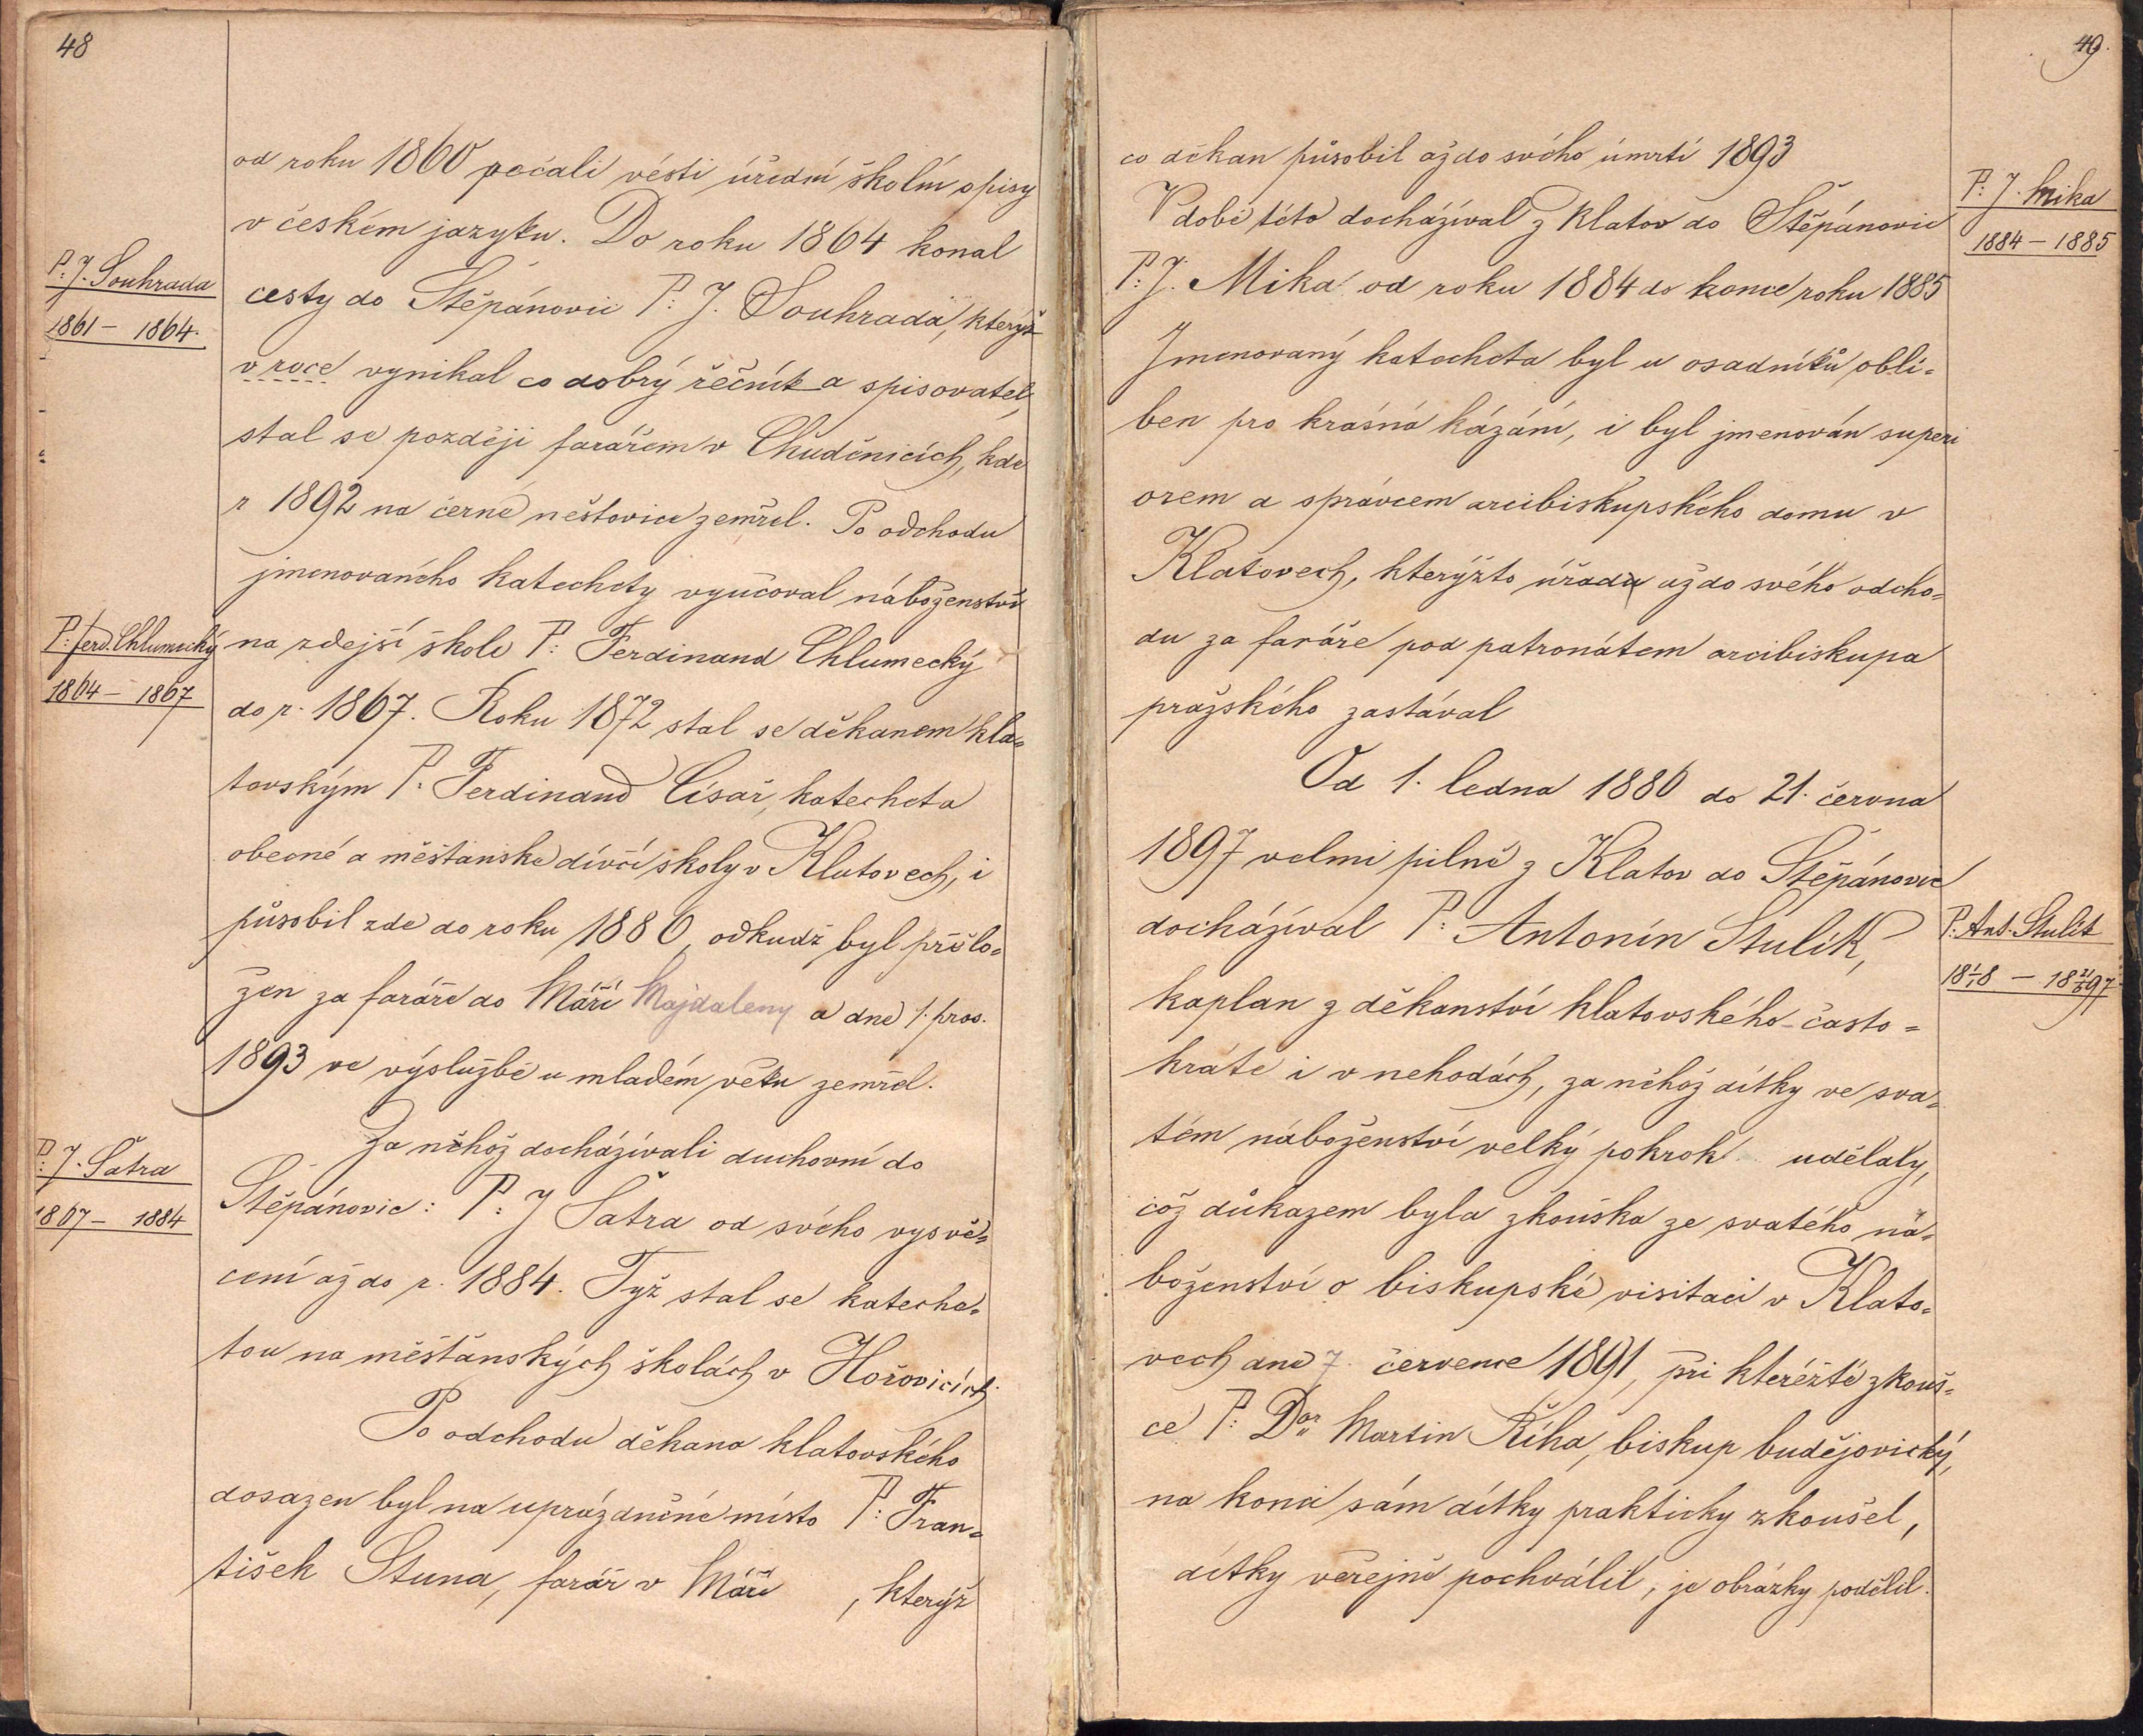 48
od roku 1860 počali vésti úřední školní spisy
v českém jazyku. Do roku 1864 konal
P: J. Souhrada
1861 – 1864.
cesty do Štěpánovic P: J. Souhrada, kterýž
v roce vynikal co dobrý řečník a spisovatel,
stal se později farářem v Chuděnicích, kde
r 1892 na černé neštovice zemřel. Po odchodu
jmenovaného katechety vyučoval náboženství
P: Ferd. Chlumecký
1864 – 1867
na zdejší škole P: Ferdinand Chlumecký
do r. 1867. Roku 1872 stal se děkanem kla=
tovským P. Ferdinand Císař, katecheta
obecné a měšťanské dívčí školy v Klatovech, i
působil zde do roku 1880, odkudž byl přelo=
žen za faráře do Máří Majdaleny a dne 1. pros.
1893 ve výslužbě u mladém věku zemřel.
Za něhož docházívali duchovní do
P: J. Šatra
1867 – 1884
Štěpánovic: P: J Šatra od svého vysvě=
cení až do r. 1884. Týž stal se kateche=
tou na měšťanských školách v Hořovicích.
Po odchodu děkana klatovského
dosazen byl na uprázdněné místo P: Fran=
tišek Stuna, farář v Máří , kterýž
49.
co děkan působil až do svého úmrtí 1893
P: J. Mika
1884 – 1885
V době této docházíval z Klatov do Štěpánovic
P: J. Mika od roku 1884 do konce roku 1885
Jmenovaný katecheta byl u osadníků oblí=
ben pro krásná kázání, i byl jmenován superi
orem a správcem arcibiskupského domu v
Klatovech, kterýžto úřad až do svého odcho=
du za faráře pod patronátem arcibiskupa
pražského zastával
Od 1. ledna 1886 do 21. června
1897 velmi pilně z Klatov do Štěpánovic
P: Ant. Stulík
docházíval P: Antonín Stulík,
kaplan z děkanství klatovského – často=
kráte i v nehodách, za něhož dítky ve sva=
tém náboženství velký pokrok udělaly,
což důkazem byla zkouška ze svatého ná=
boženství o biskupské visitaci v Klato=
vech dne 7. července 1891, při kteréžto zkouš=
ce P: Dor Martin Říha, biskup budějovický,
na konci sám dítky prakticky zkoušel,
dítky veřejně pochválil, je obrázky podělil.